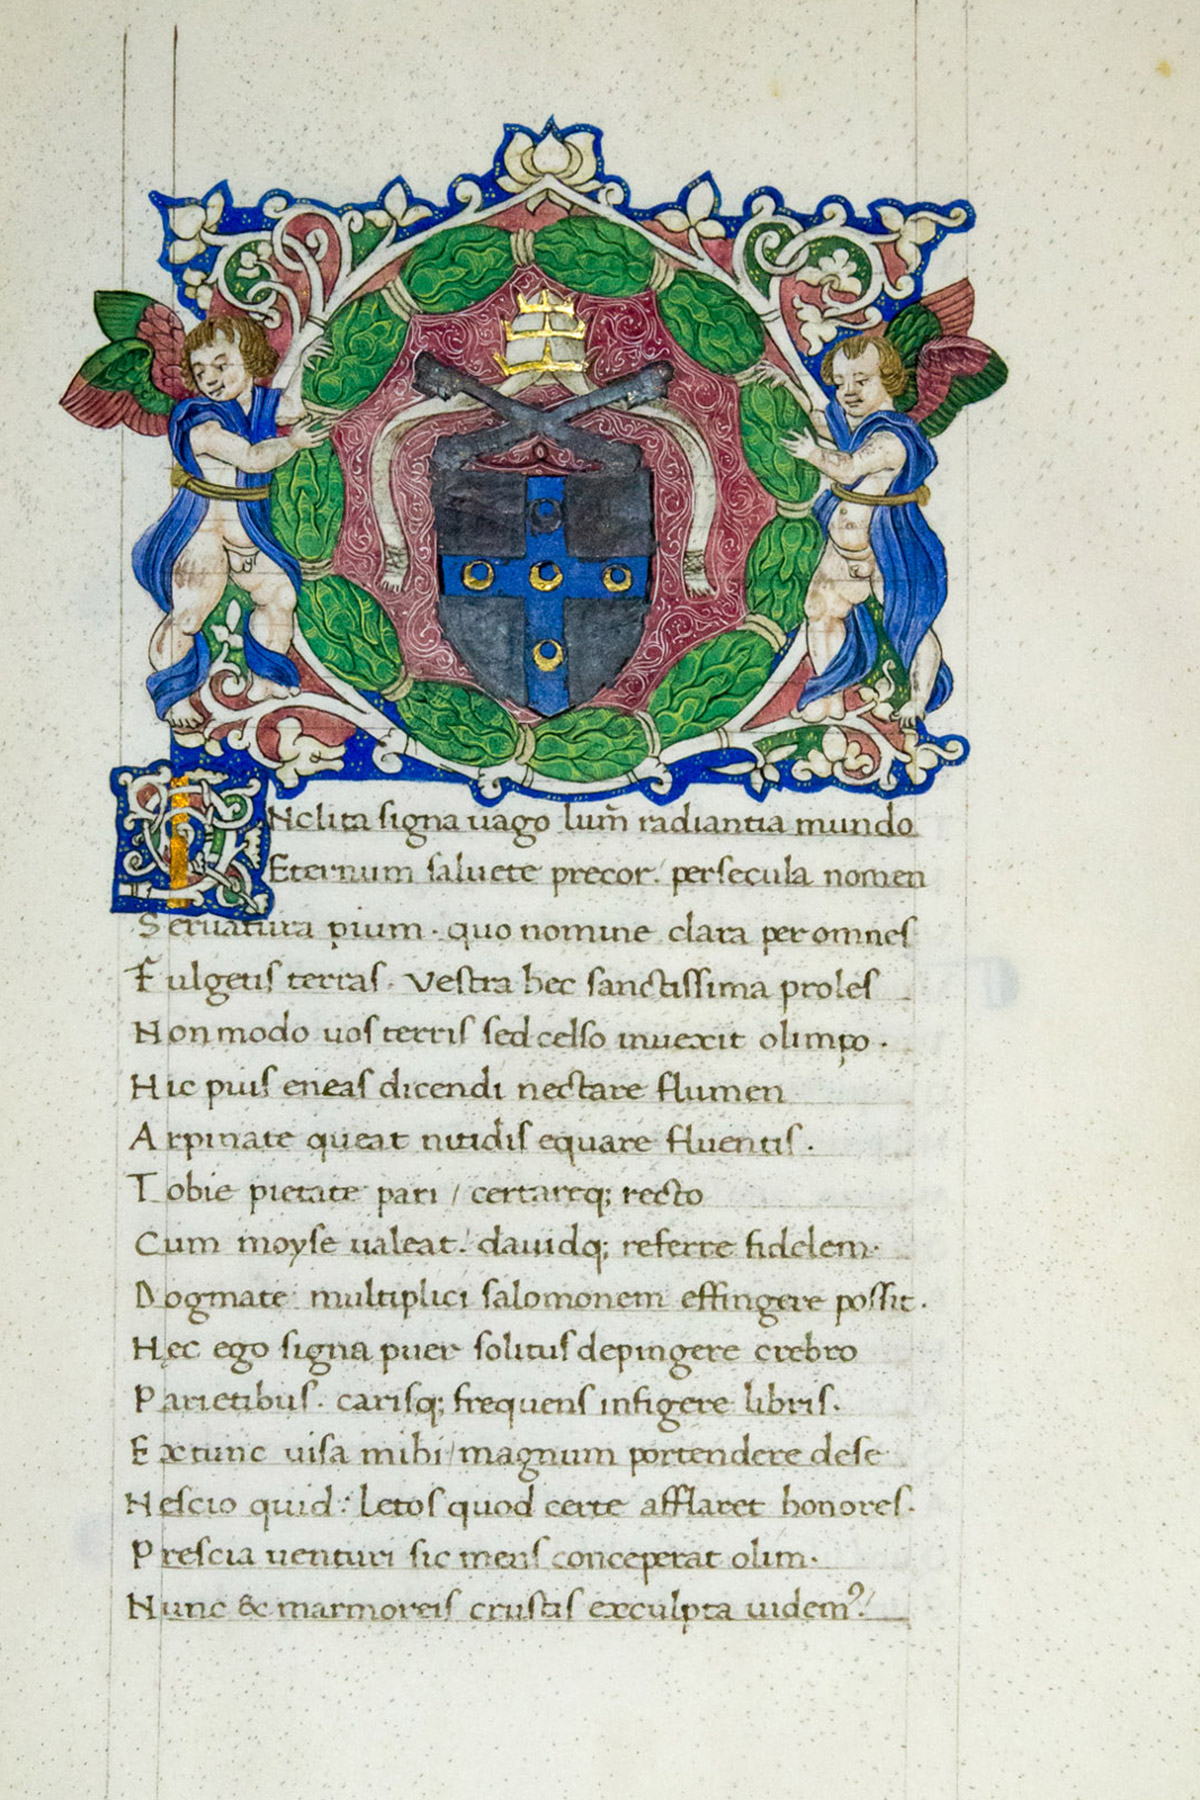 INclita signa uago lum̃ radiantia mundo
Eternum saluete precor. persecula nomen
Seruatura pium · quo nomine clara per omnes
Fulgetis terras. Vestra hec sanctissima proles
Non modo uos terris sed celso inuexit olimpo ·
Hic pius eneas dicendi nectare flumen
Arpinate queat nitidis equare fluentis ·
Tobie pietate pari / certareq; recto
Cum moyse ualeat. dauidq; referre fidelem ·
Dogmate multiplici salomonem effingere possit ·
Hec ego signa puer solitus depingere crebro
Parietibus · carisq; frequens infigere libris.
Extunc uisa mihi / magnum portendere dese
Nescio quid: letos quod certe afflaret honores ·
Prescia uenturi sic mens conceperat olim ·
Nunc & marmoreis crustis exculpta uidem?/